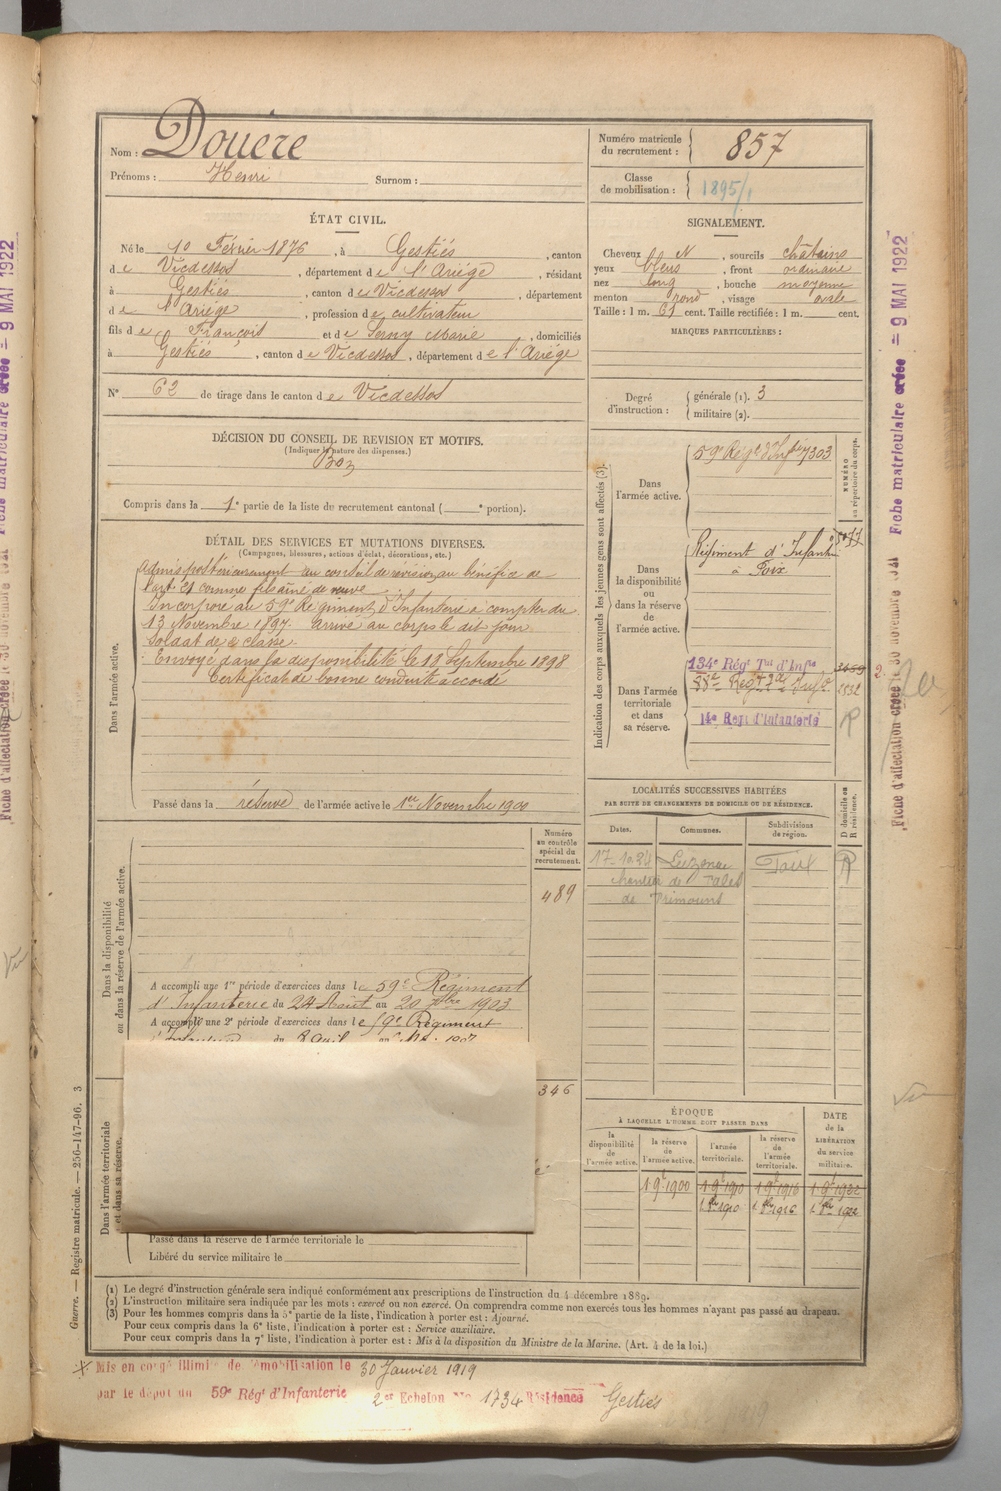 Nom : Douère
Prénoms : Henri Surnom :
Numéro matricule du recrutement : 857
Classe de mobilisation : 1895/1
ÉTAT CIVIL.
Né le 10 Février 1876, à Gestiés, canton
de Vicdessos, département de l'Ariège, résidant
à Gestiés, canton de Vicdessos, département
de l'Ariège, profession de cultivateur
fils de François et de Serny Marie, domiciliés
à Gestiés, canton de Vicdessos, département de l'Ariège
N° 62 de tirage dans le canton de Vicdessos
SIGNALEMENT.
Cheveux N, sourcils châtains
yeux bleus, front ordinaire
nez long, bouche moyenne
menton rond, visage ovale
Taille : 1 m. 61 cent. Taille rectifiée : 1 m. cent.
MARQUES PARTICULIÈRES :
Degré d'instruction : générale (1). 3
militaire (2).
DÉCISION DU CONSEIL DE REVISION ET MOTIFS.
(Indiquer la nature des dispenses.)
Bon
Compris dans la 1e partie de la liste du recrutement cantonal ( e portion).
DÉTAIL DES SERVICES ET MUTATIONS DIVERSES.
(Campagnes, blessures, actions d'éclat, décorations, etc.)
Dans l'armée active.
Admis postérieurement au conseil de révision au bénéfice de
l'art. 21 comme fils aîné de veuve
Incorporé au 59e Régiment d'Infanterie à compter du
13 Novembre 1897. Arrivé au corps le dit jour
Soldat de 2e classe.
Envoyé dans la disponibilité le 18 Septembre 1898
Certificat de bonne conduite accordé
Passé dans la réserve de l'armée active le 1er Novembre 1900
Indication des corps auxquels les jeunes gens sont affectés (3).
NUMÉRO au répertoire du corps.
Dans l'armée active.
59e Régt d'Infie 7303
Dans la disponibilité ou dans la réserve de l'armée active.
Régiment d'Infanterie
à Foix
Dans l'armée territoriale et dans sa réserve.
134e Régt Tal d'Infie
14e Regt d'Infanterie
R
LOCALITÉS SUCCESSIVES HABITÉES
PAR SUITE DE CHANGEMENTS DE DOMICILE OU DE RÉSIDENCE.
Dates. Communes. Subdivisions de région. D domicile ou R résidence.
Luzenac Foix R
de Trimouns
Dans la disponibilité ou dans la réserve de l'armée active.
Numéro au contrôle spécial du recrutement.
489
A accompli une 1re période d'exercices dans le 59e Régiment
d'Infanterie du 24 Août au 20 7bre 1903
A accompli une 2e période d'exercices dans le 59e Régiment
346
Dans l'armée territoriale et dans sa réserve.
Passé dans la réserve de l'armée territoriale le
Libéré du service militaire le
ÉPOQUE
À LAQUELLE L'HOMME DOIT PASSER DANS
la disponibilité de l'armée active. la réserve de l'armée active. l'armée territoriale. la réserve de l'armée territoriale.
DATE de la LIBÉRATION du service militaire.
1 9e 1900 1 9e 1910 1 9e 1916 1 9e 1922
(1) Le degré d'instruction générale sera indiqué conformément aux prescriptions de l'instruction du 4 décembre 1889.
(2) L'instruction militaire sera indiquée par les mots : exercé ou non exercé. On comprendra comme non exercés tous les hommes n'ayant pas passé au drapeau.
(3) Pour les hommes compris dans la 5e partie de la liste, l'indication à porter est : Ajourné.
Pour ceux compris dans la 6e liste, l'indication à porter est : Service auxiliaire.
Pour ceux compris dans la 7e liste, l'indication à porter est : Mis à la disposition du Ministre de la Marine. (Art. 4 de la loi.)
Mis en congé illimité de démobilisation le 30 Janvier 1919
par le dépôt du 59e Régt d'Infanterie 2e Echelon No 1734 Résidence Gestiés
Guerre. — Registre matricule. — 256-147-96. 3
Fiche matriculaire créée = 9 MAI 1922
Fiche d'affectation créée le 30 novembre